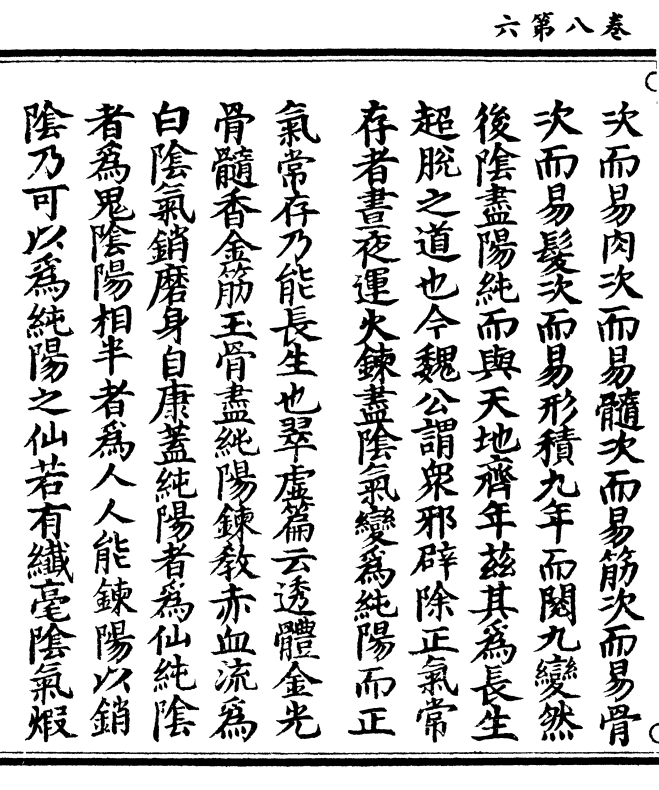 卷八第六
次而易肉次而易髓次而易筋次而易骨
次而易髮次而易形積九年而閱九變然
後陰盡陽純而與天地齊年茲其爲長生
超脫之道也今魏公謂衆邪辟除正氣常
存者晝夜運火鍊盡陰氣變爲純陽而正
氣常存乃能長生也翠虛篇云透體金光
骨髓香金筋玉骨盡純陽鍊教赤血流爲
白陰氣銷磨身自康蓋純陽者爲仙純陰
者爲鬼陰陽相半者爲人人能鍊陽以銷
陰乃可以爲純陽之仙若有纖毫陰氣煆